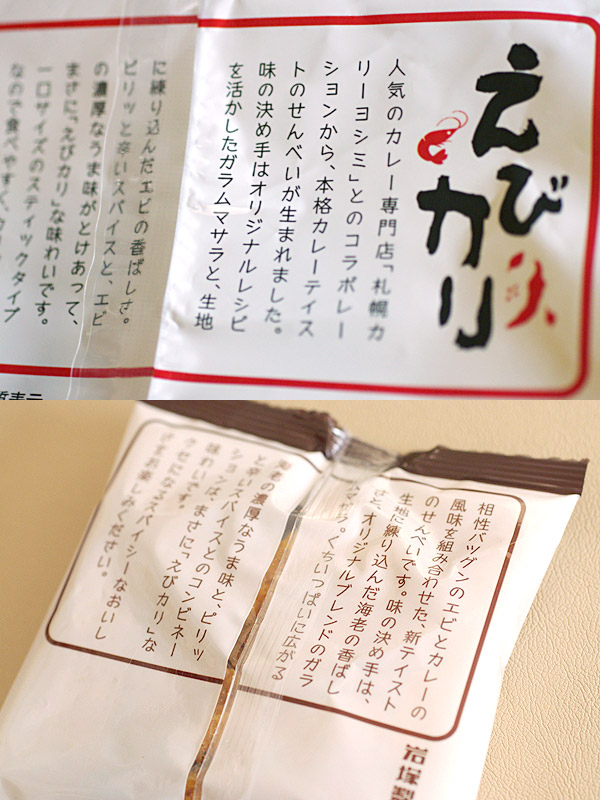 えび
カリ
人気のカレー専門店「札幌カ
リーヨシミ」とのコラボレー
ションから、本格カレーテイス
トのせんべいが生まれました。
味の決め手はオリジナルレシピ
を活かしたガラムマサラと、生地
に練り込んだエビの香ばしさ。
ピリッと辛いスパイスと、エビ
の濃厚なうま味がとけあって、
まさに「えびカリ」な味わいです。
一口サイズのスティックタイプ
なので食べやすく、
相性バツグンのエビとカレーの
風味を組み合わせた、新テイスト
のせんべいです。味の決め手は、
生地に練り込んだ海老の香ばし
さと、オリジナルブレンドのガラ
ムマサラ。くちいっぱいに広がる
海老の濃厚なうま味と、ピリッ
と辛いスパイスとのコンビネー
ションは、まさに「えびカリ」な
味わいです。
クセになるスパイシーなおいし
さをお楽しみください。
岩塚製